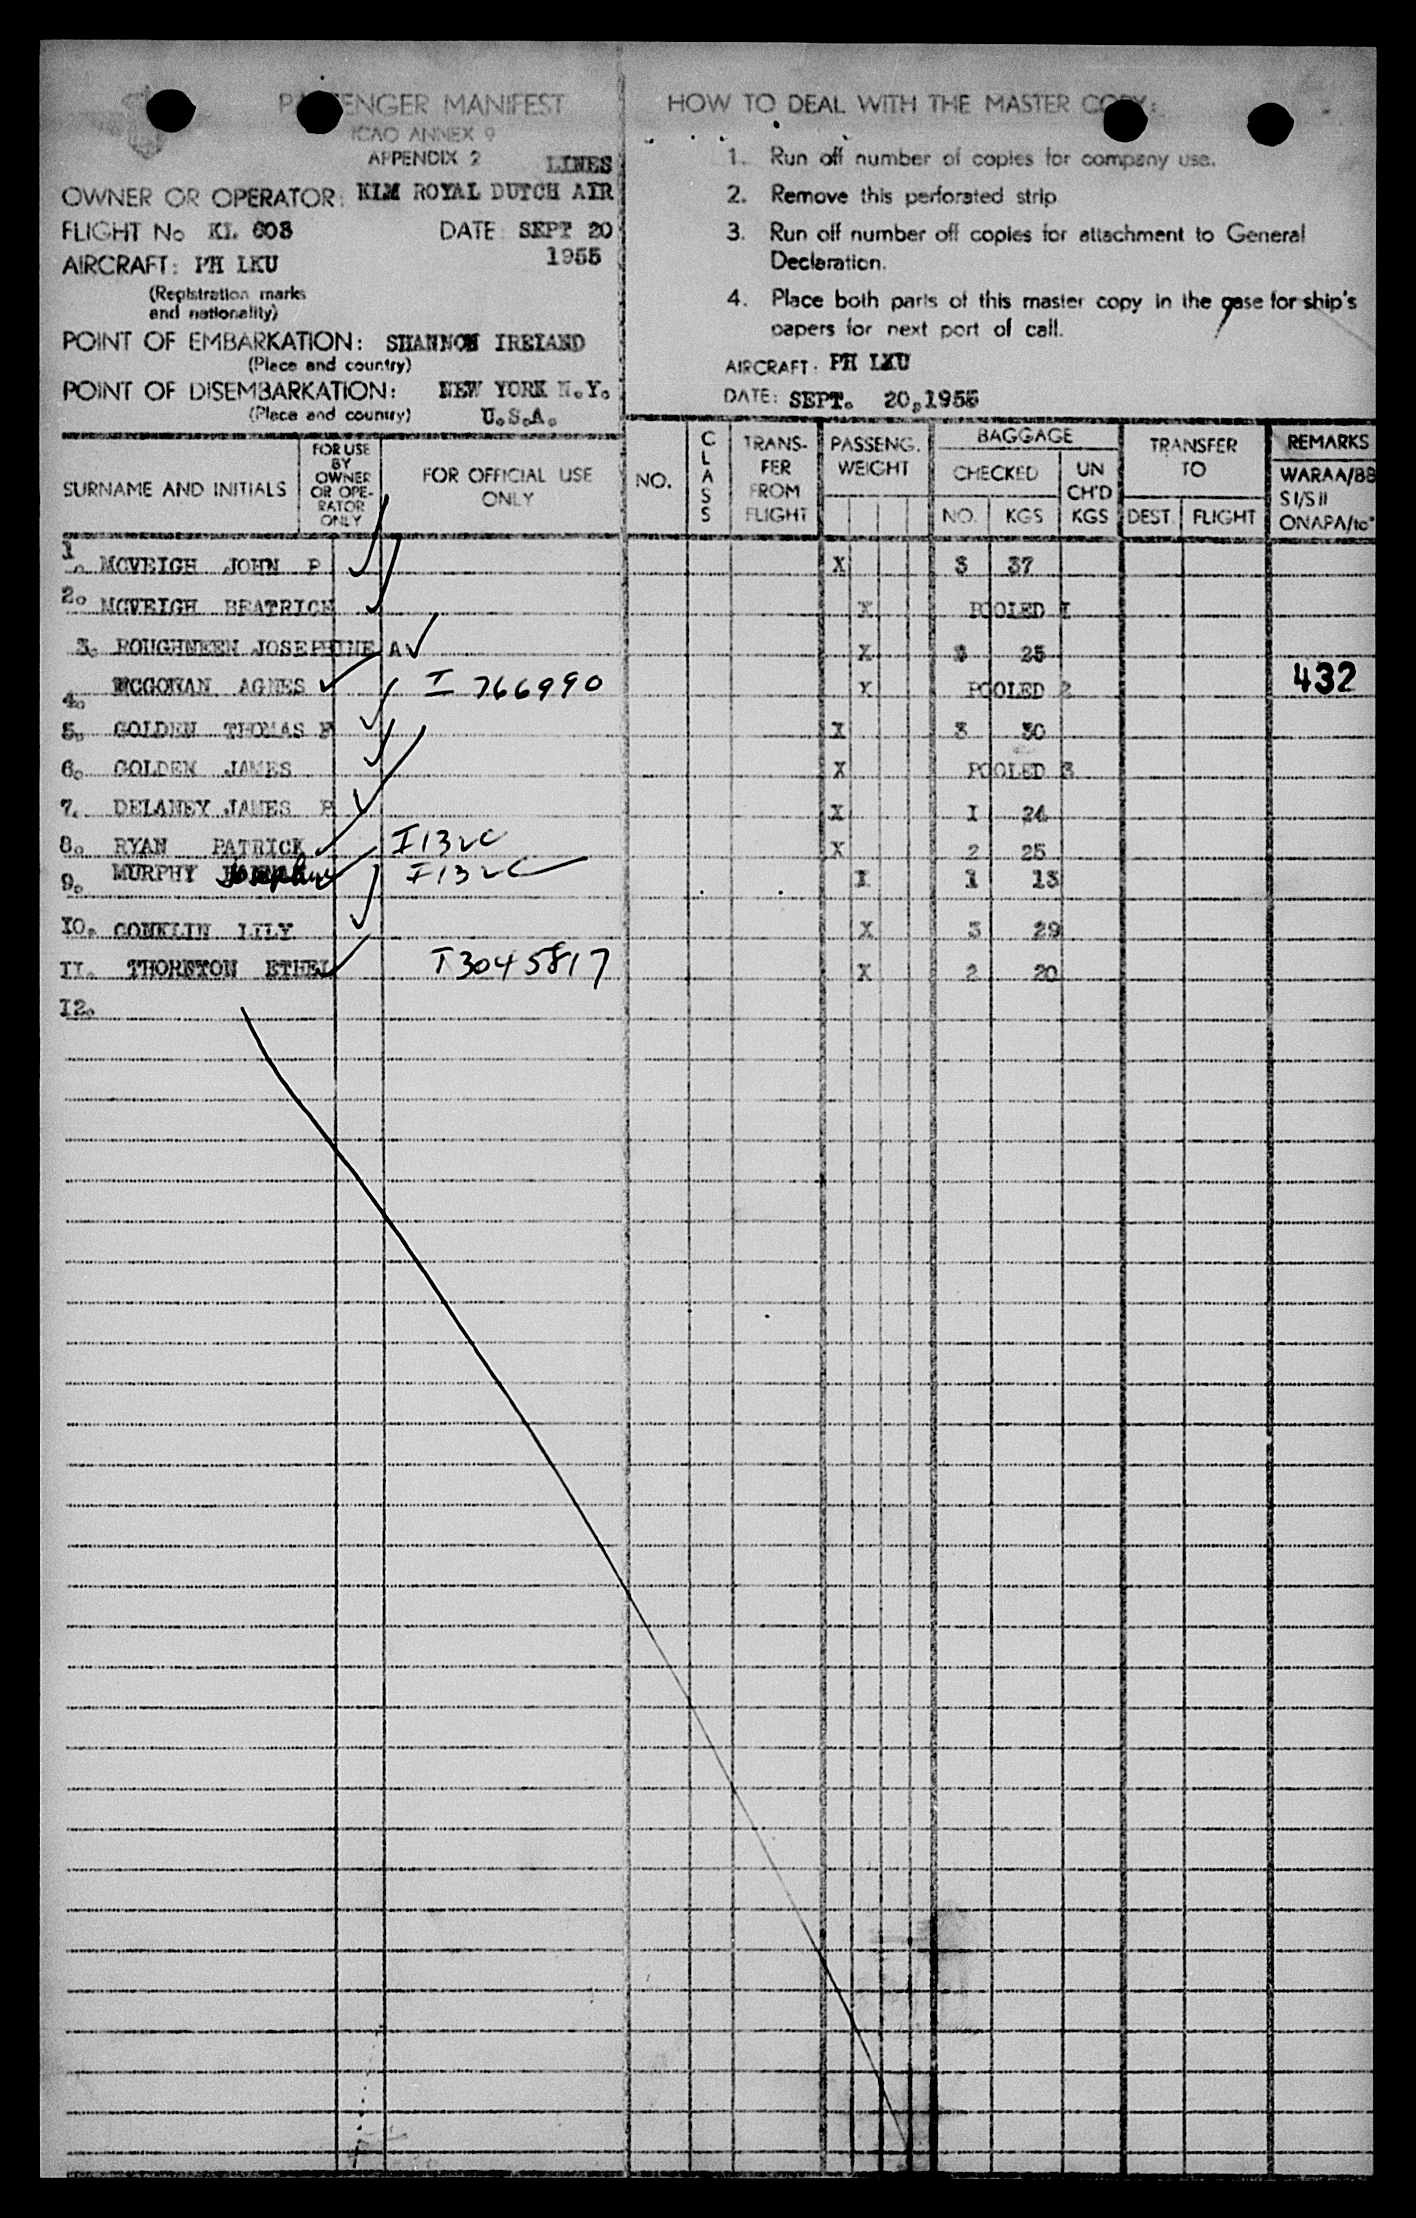 PASSENGER MANIFEST
ICAO ANNEX 9
APPENDIX 2
LINES
OWNER OR OPERATOR: KLM ROYAL DUTCH AIR
FLIGHT No KL 603 DATE: SEPT 20
1955
AIRCRAFT: PH LKU
(Registration marks
and nationality)
POINT OF EMBARKATION: SHANNON IRELAND
(Place and country)
POINT OF DISEMBARKATION: NEW YORK N.Y.
(Place and country) U.S.A.
HOW TO DEAL WITH THE MASTER COPY:
1. Run off number of copies for company use.
2. Remove this perforated strip
3. Run off number off copies for attachment to General
Declaration.
4. Place both parts of this master copy in the case for ship's
papers for next port of call.
AIRCRAFT: PH LKU
DATE: SEPT. 20,1955
SURNAME AND INITIALS
FOR USE
BY
OWNER
OR OPE-
RATOR
ONLY
FOR OFFICIAL USE
ONLY
NO.
CLASS
TRANS-
FER
FROM
FLIGHT
PASSENG.
WEIGHT
BAGGAGE
CHECKED
NO. KGS
UN
CH'D
KGS
TRANSFER
TO
DEST. FLIGHT
REMARKS
WARAA/BB
SI/SII
ONAPA/tc
1. MCVEIGH JOHN P X 3 37
2. MCVEIGH BEATRICE X POOLED 1
3. ROUGHNEEN JOSEPHINE A X 3 25
4. MCGOWAN AGNES I 766990 X POOLED 2 432
5. GOLDEN THOMAS F X 3 30
6. GOLDEN JAMES X POOLED 3
7. DELANEY JAMES P X I 24
8. RYAN PATRICK I132C X 2 25
9. MURPHY Josephine I132C X 1 13
I0. CONKLIN LILY X 3 29
II. THORNTON ETHEL T3045817 X 2 20
I2.